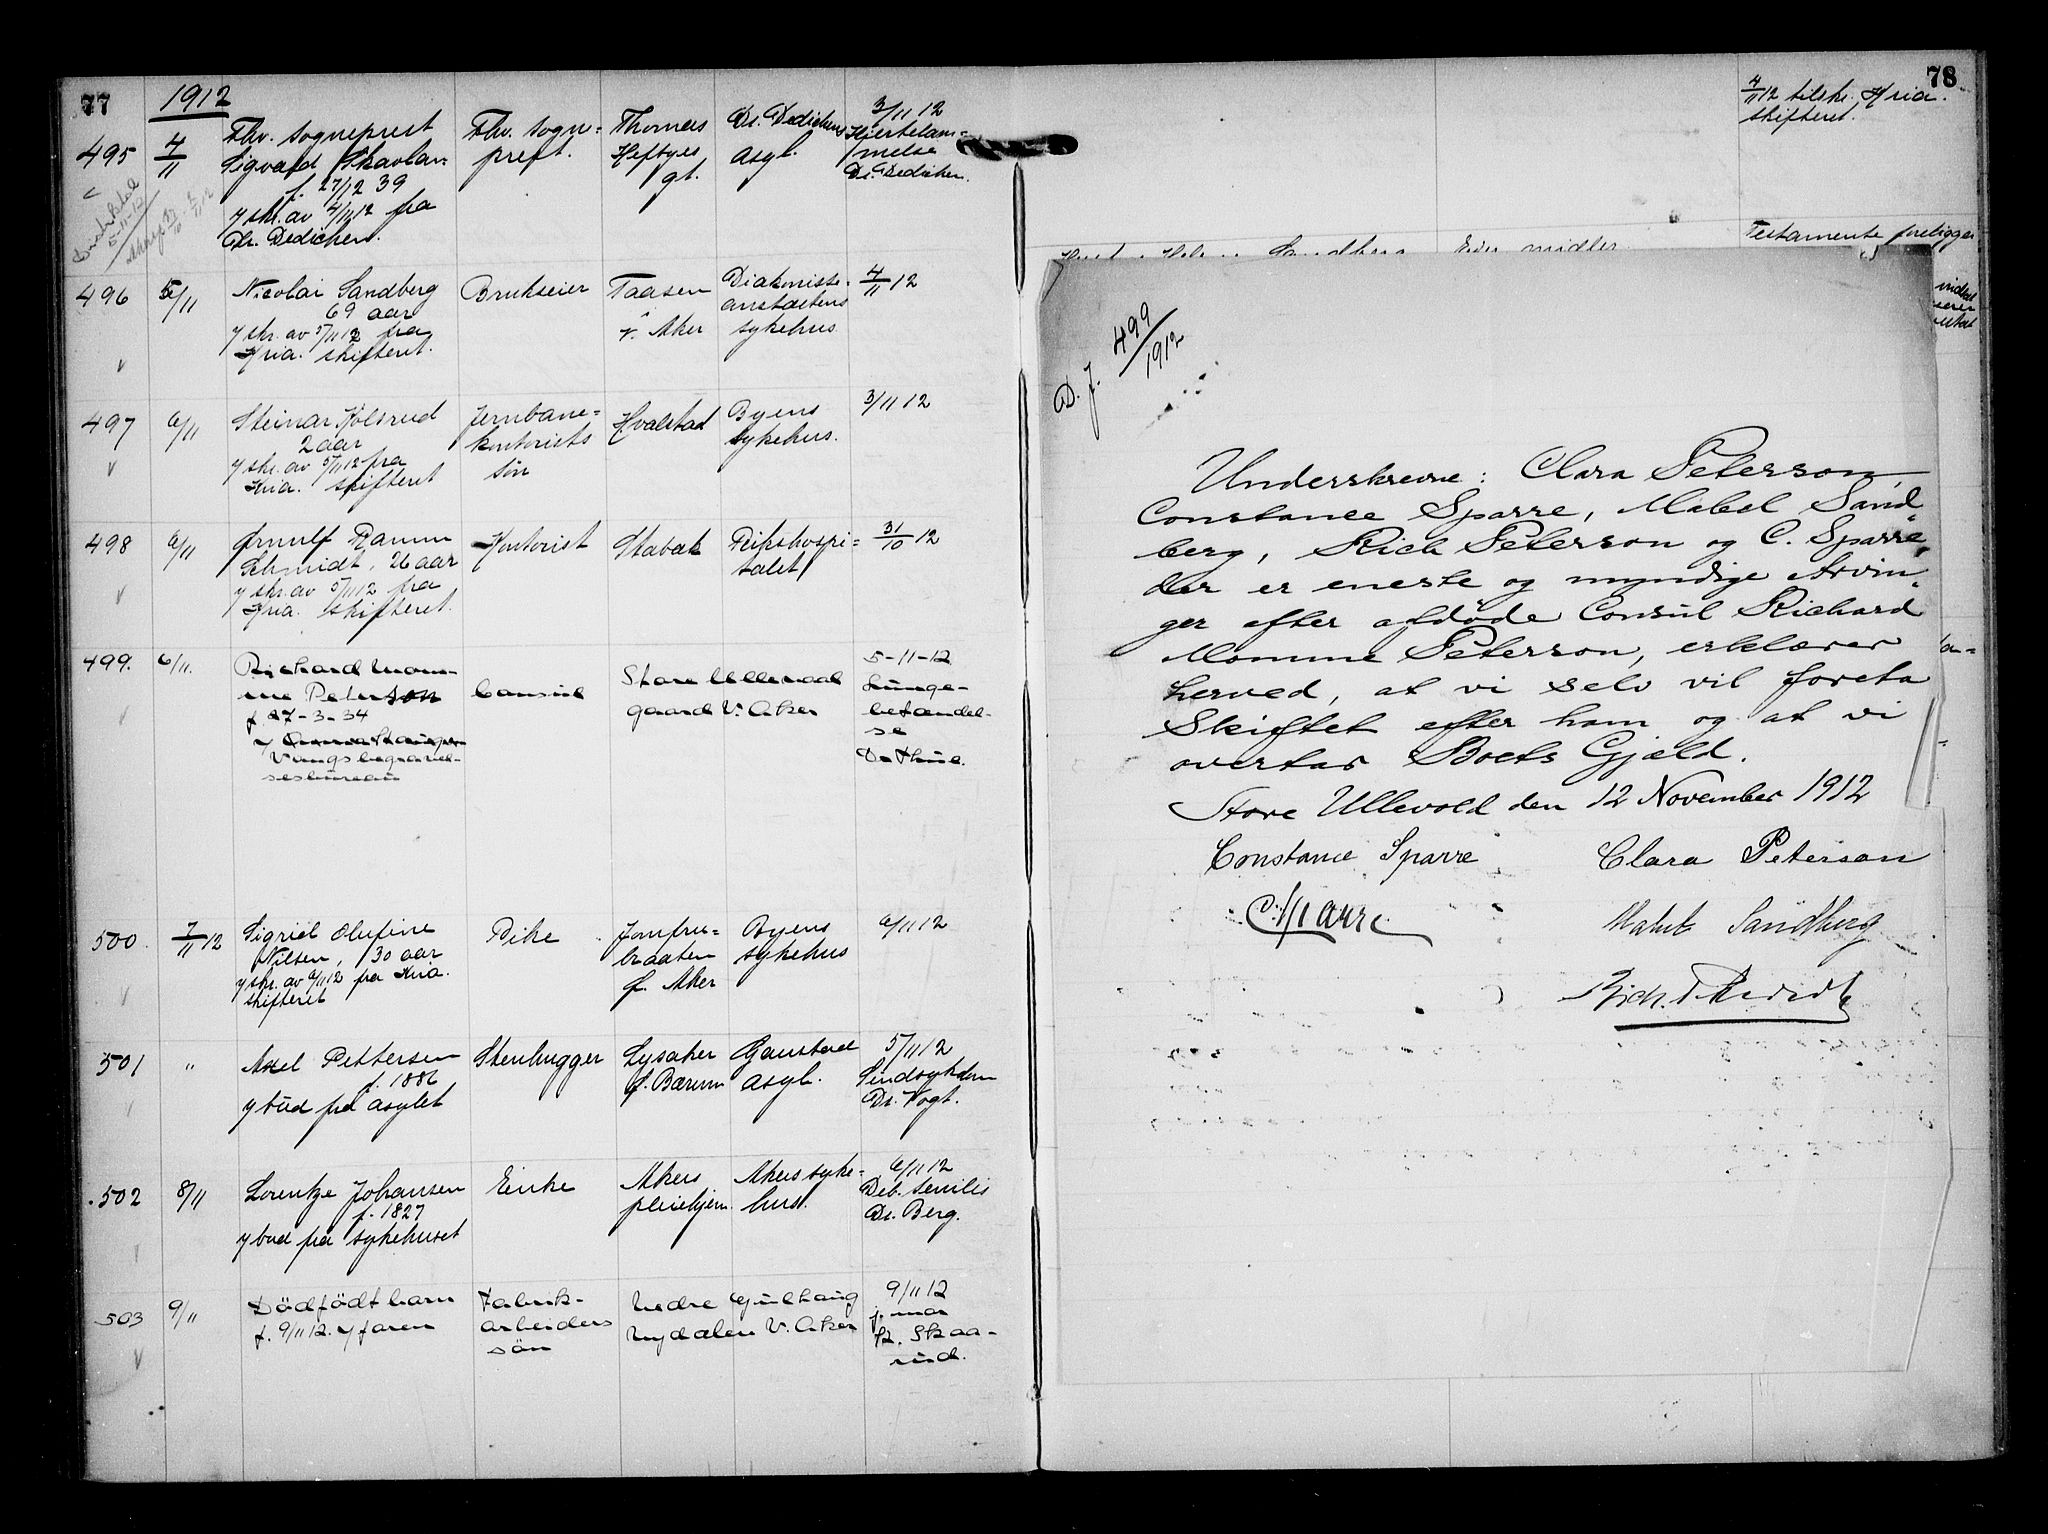 77
1912
495 4/11 Fhv. sogneprest Fhv. sogne= Thomas Dr. Dedichens 3/11 12
Sigvald Skavlan prest. Heftyes asyl. Hjertelam=
f. 27/12 39 gt. melse
Dr. Dedichen.
5-11-12
y skr. av 4/11 12 fra
Dr. Dedichen.
496 5/11 Nicolai Sandberg Brukseier Taasen Diakonisse- 4/11 12
69 aar anstaltens
y skr. av 5/11 12 fra v. Aker sykehus
Kria. skifteret.
497 6/11 Steinar Kolsrud Jernbane= Hvalstad Byens 3/11 12
2 aar kontorists sykehus.
y skr. av 5/11 12 fra søn
Kria. skifteret
498 6/11 Ørnulf Ramm Kontorist Stabæk Rikshospi= 31/10 12
Schmidt, 26 aar talet
y skr. av 5/11 12 fra
Kria. skifteret.
499. 6/11. Richard Mom- Consul Store Ullevaal 5-11-12
me Peterson gaard V. Aker Lunge-
f. 27-3-34 betændel-
se
Vangs begravel- Dr Thue.
sesbureau
500. 7/11 12 Sigrid Olufine Pike Jomfru= Byens 6/11 12
Nilsen, 30 aar braaten sykehus
y skr. av 6/11 12 fra Kria. f. Aker
skifteret
501 " Axel Pettersen Stenhugger Lysaker Gaustad 5/11 12
f. 1886 f. Bærum asyl. Sindsykdom
y bud fra asylet Dr. Vogt.
502 8/11 Lorentze Johansen Enke Akers Akers syke= 6/11 12
f. 1827 pleiehjem hus. Deb. senilis
y bud fra sykehuset Dr. Berg.
503 9/11 Dödfödt barn Fabrik- Nedre Gullhaug 9/11 12
f. 9/11 12. y faren arbeiders Nydalen V. Aker j.mor
sön Skaa-
rud.
78
4/11 12 tilskr. Kria.
skifteret.
Testamente foreligger
Sandberg Eier midler
D. J. 499/1912
Underskrevne: Clara Peterson,
Constance Sparre, Mabel Sand
berg, Rich Peterson og C. Sparre,
der er eneste og myndige Arvin
ger efter afdøde Consul Richard
Momme Peterson, erklærer
herved, at vi selv vil foreta
Skiftet efter ham og at vi
overtar Boets Gjæld.
Store Ullevold den 12 November 1912
Constance Sparre Clara Peterson
C. Sparre Mabel Sandberg